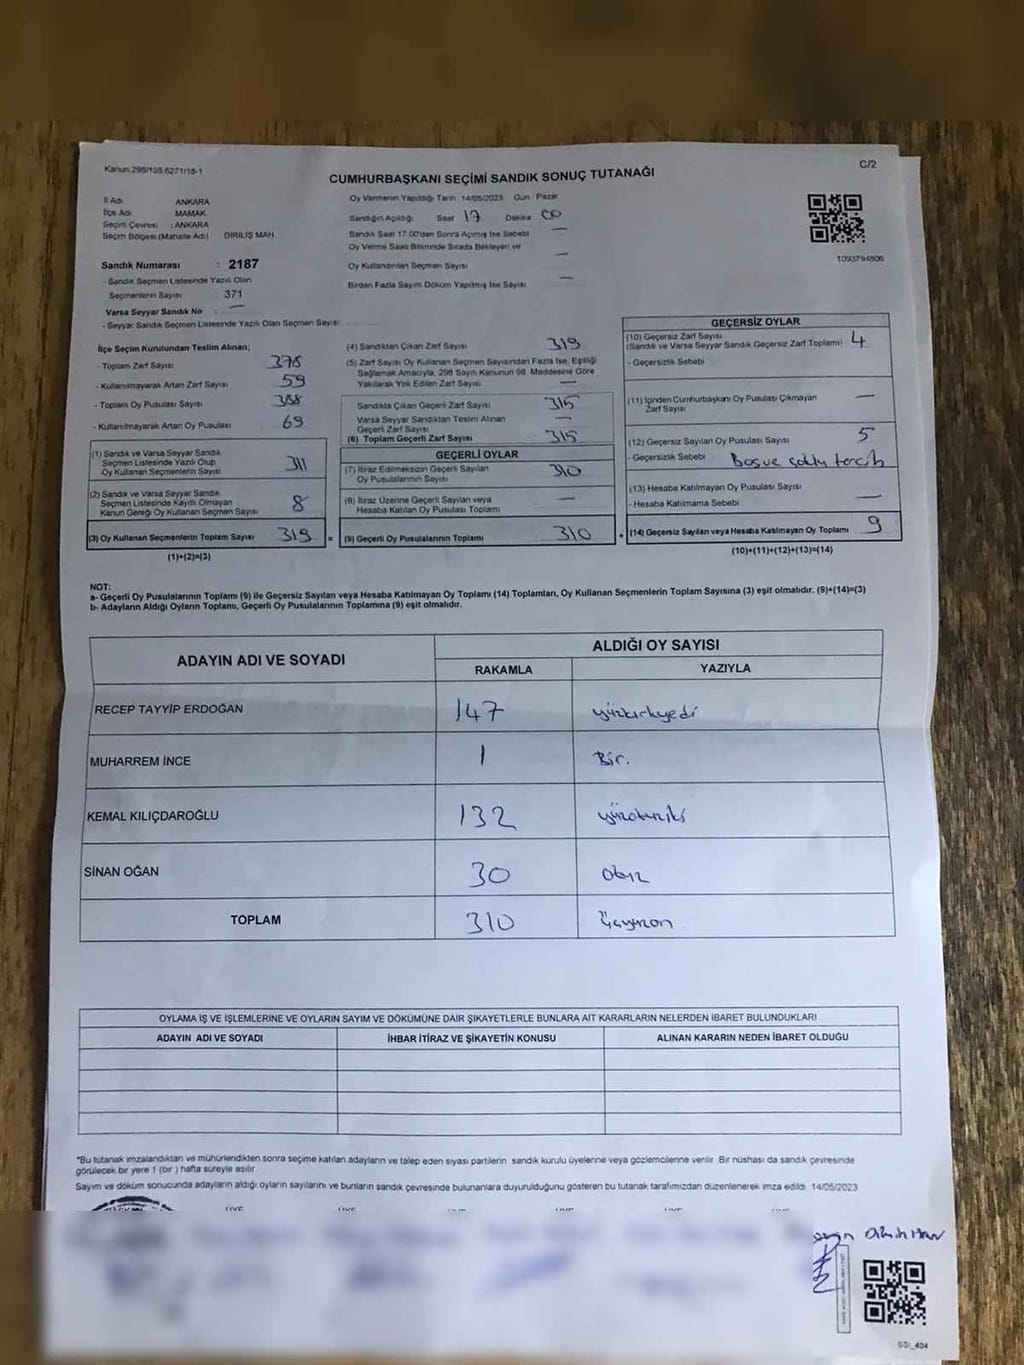 Kanun,298/105,6271/18-1
C/2
CUMHURBAŞKANI SEÇİMİ SANDIK SONUÇ TUTANAĞI
İl Adı ANKARA
İlçe Adı MAMAK
Seçim Çevresi : ANKARA
Seçim Bölgesi (Mahalle Adı) DİRİLİŞ MAH.
Oy Vermenin Yapıldığı Tarih 14/05/2023 Gün : Pazar
Sandığın Açıldığı Saat 17 Dakika 00
Sandık Saat 17.00'den Sonra Açılmış İse Sebebi —
Oy Verme Saati Bitiminde Sırada Bekleyen ve
Oy Kullandırılan Seçmen Sayısı —
Birden Fazla Sayım Döküm Yapılmış İse Sayısı —
1093794806
Sandık Numarası : 2187
- Sandık Seçmen Listesinde Yazılı Olan
Seçmenlerin Sayısı : 371
Varsa Seyyar Sandık No : —
- Seyyar Sandık Seçmen Listesinde Yazılı Olan Seçmen Sayısı
İlçe Seçim Kurulundan Teslim Alınan;
- Toplam Zarf Sayısı 378
- Kullanılmayarak Artan Zarf Sayısı 59
- Toplam Oy Pusulası Sayısı 388
- Kullanılmayarak Artan Oy Pusulası 69
(1) Sandık ve Varsa Seyyar Sandık
Seçmen Listesinde Yazılı Olup
Oy Kullanan Seçmenlerin Sayısı 311
(2) Sandık ve Varsa Seyyar Sandık
Seçmen Listesinde Kayıtlı Olmayan
Kanun Gereği Oy Kullanan Seçmen Sayısı 8
(3) Oy Kullanan Seçmenlerin Toplam Sayısı 319
(1)+(2)=(3)
(4) Sandıktan Çıkan Zarf Sayısı 319
(5) Zarf Sayısı Oy Kullanan Seçmen Sayısından Fazla İse, Eşitliği
Sağlamak Amacıyla, 298 Sayılı Kanunun 98. Maddesine Göre
Yakılarak Yok Edilen Zarf Sayısı —
Sandıkta Çıkan Geçerli Zarf Sayısı 315
Varsa Seyyar Sandıktan Teslim Alınan
Geçerli Zarf Sayısı —
(6) Toplam Geçerli Zarf Sayısı 315
GEÇERLİ OYLAR
(7) İtiraz Edilmeksizin Geçerli Sayılan
Oy Pusulalarının Sayısı 310
(8) İtiraz Üzerine Geçerli Sayılan veya
Hesaba Katılan Oy Pusulası Toplamı —
= (9) Geçerli Oy Pusulalarının Toplamı 310
GEÇERSİZ OYLAR
(10) Geçersiz Zarf Sayısı
(Sandık ve Varsa Seyyar Sandık Geçersiz Zarf Toplamı) 4
- Geçersizlik Sebebi
(11) İçinden Cumhurbaşkanı Oy Pusulası Çıkmayan
Zarf Sayısı —
(12) Geçersiz Sayılan Oy Pusulası Sayısı 5
- Geçersizlik Sebebi Boş ve çoklu tercih
(13) Hesaba Katılmayan Oy Pusulası Sayısı
- Hesaba Katılmama Sebebi —
+ (14) Geçersiz Sayılan veya Hesaba Katılmayan Oy Toplamı 9
(10)+(11)+(12)+(13)=(14)
NOT:
a- Geçerli Oy Pusulalarının Toplamı (9) ile Geçersiz Sayılan veya Hesaba Katılmayan Oy Toplamı (14) Toplamları, Oy Kullanan Seçmenlerin Toplam Sayısına (3) eşit olmalıdır. (9)+(14)=(3)
b- Adayların Aldığı Oyların Toplamı, Geçerli Oy Pusulalarının Toplamına (9) eşit olmalıdır.
ADAYIN ADI VE SOYADI
ALDIĞI OY SAYISI
RAKAMLA YAZIYLA
RECEP TAYYİP ERDOĞAN 147 yüzkırkyedi
MUHARREM İNCE 1 Bir.
KEMAL KILIÇDAROĞLU 132 yüzotuziki
SİNAN OĞAN 30 otuz
TOPLAM 310 Üçyüzon
OYLAMA İŞ VE İŞLEMLERİNE VE OYLARIN SAYIM VE DÖKÜMÜNE DAİR ŞİKAYETLERLE BUNLARA AİT KARARLARIN NELERDEN İBARET BULUNDUKLARI
ADAYIN ADI VE SOYADI İHBAR İTİRAZ VE ŞİKAYETİN KONUSU ALINAN KARARIN NEDEN İBARET OLDUĞU
*Bu tutanak imzalandıktan ve mühürlendikten sonra seçime katılan adayların ve talep eden siyasi partilerin sandık kurulu üyelerine veya gözlemcilerine verilir. Bir nüshası da sandık çevresinde
görülecek bir yere 1 (bir ) hafta süreyle asılır.
Sayım ve döküm sonucunda adayların aldığı oyların sayılarını ve bunların sandık çevresinde bulunanlara duyurulduğunu gösteren bu tutanak tarafımızdan düzenlenerek imza edildi. 14/05/2023
ÜYE ÜYE ÜYE ÜYE ÜYE